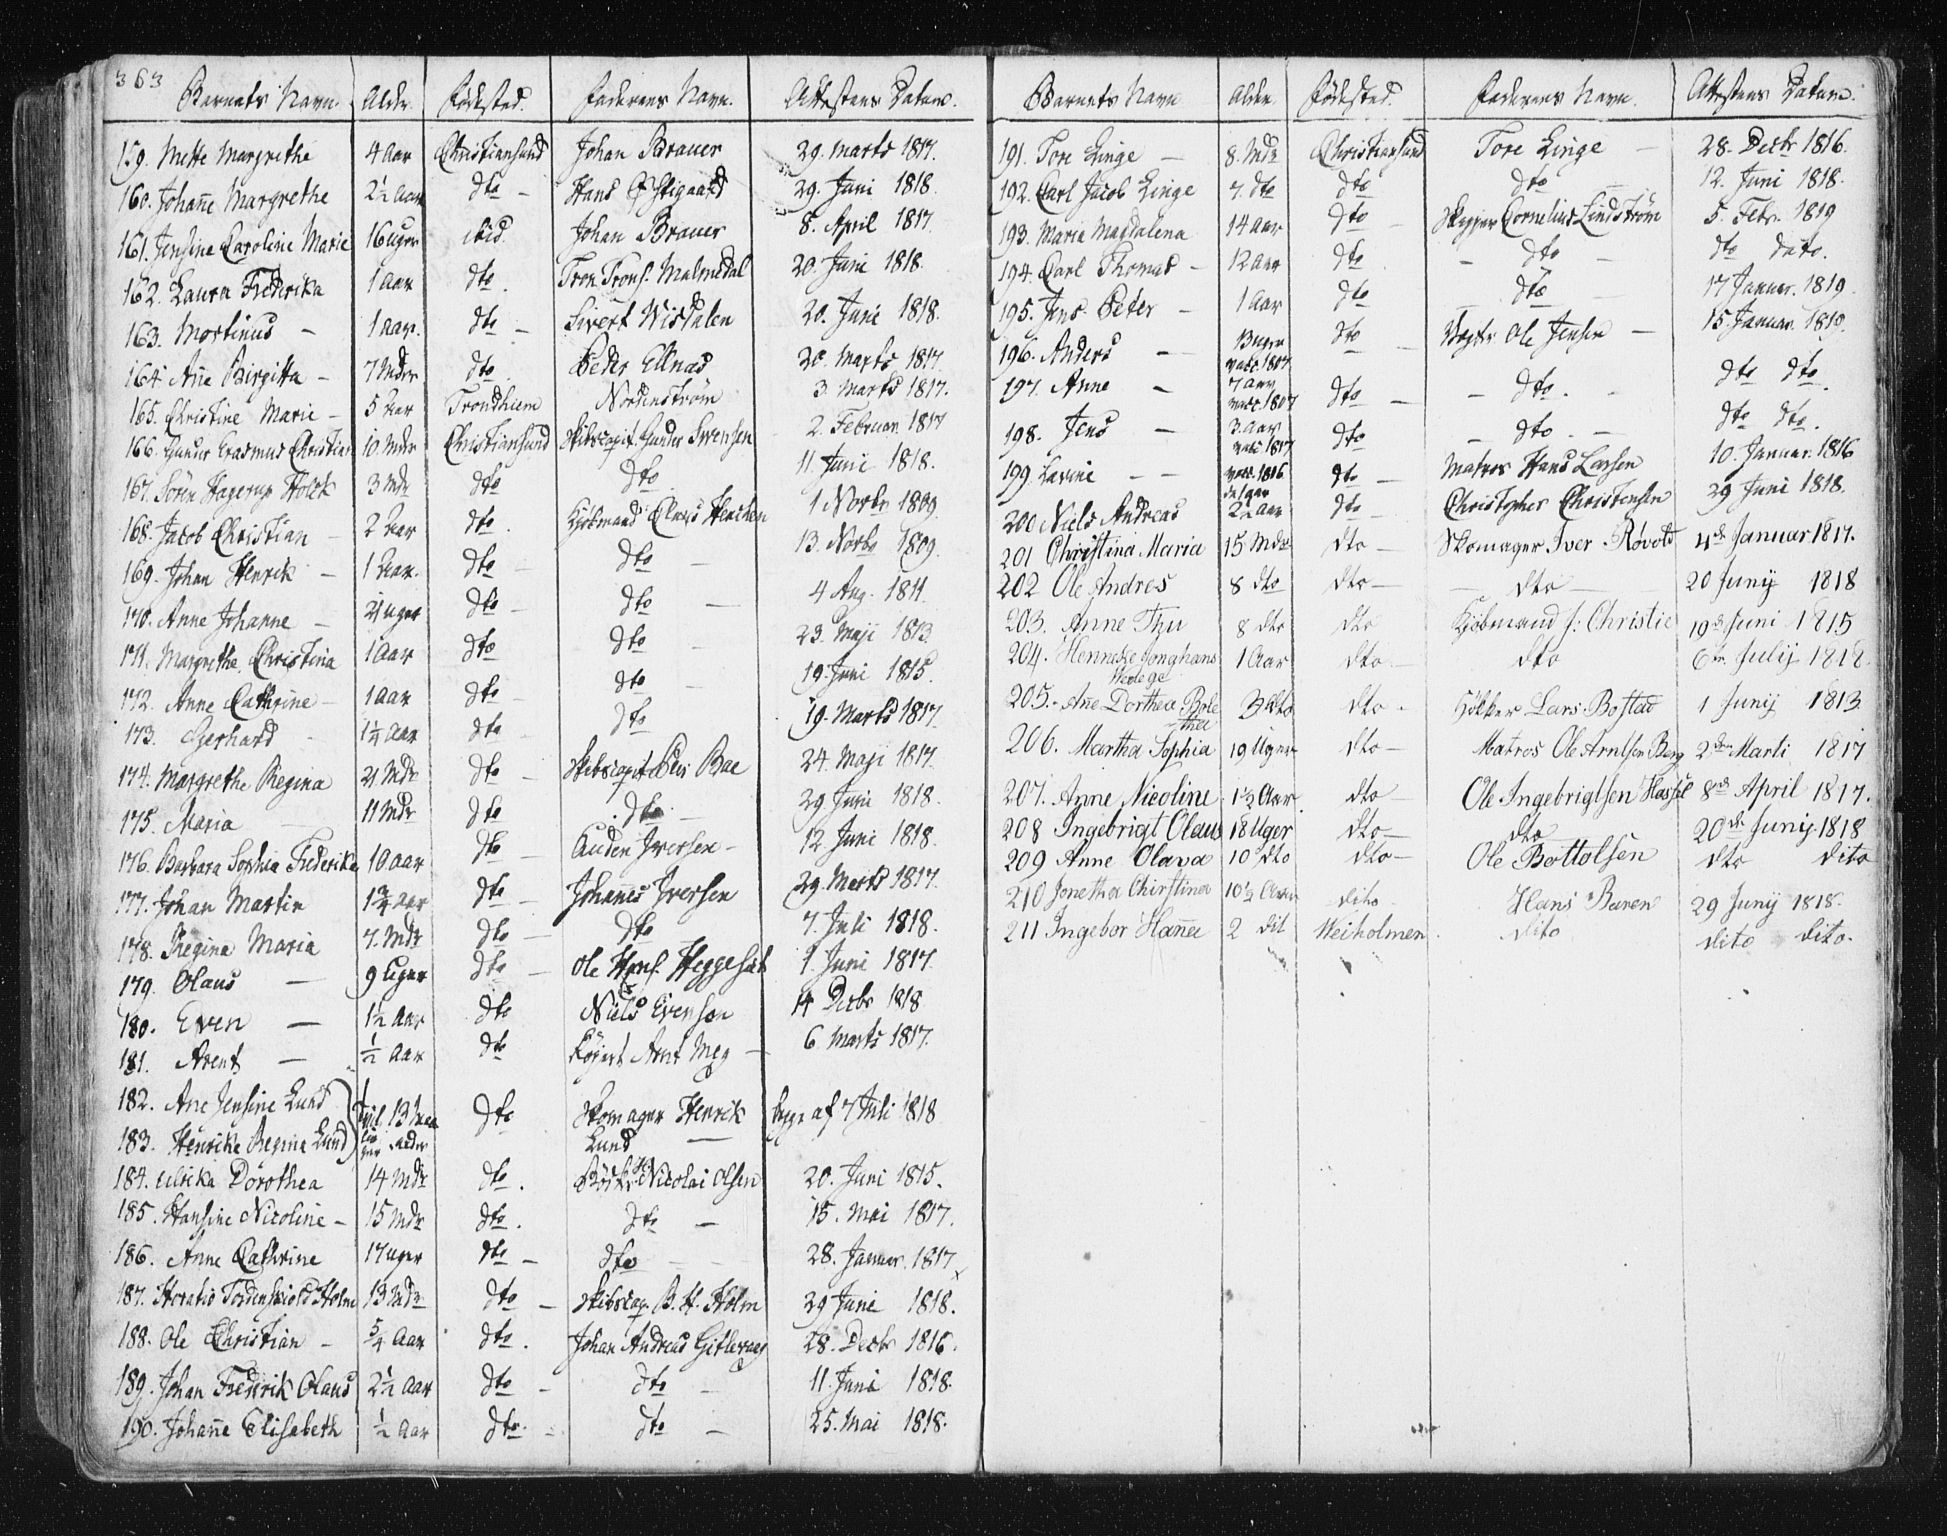 363
Barnets Navn. Alder. Födested. Faderens Navn. Attestens Datum.
159. Mette Margrethe 4 Aar Christiansund Johan Brauer 29. Marts 1817.
160. Johan̄e Margrethe 2½ Aar dto - Hans 29. Juni 1818.
161. Jensine Caroline Marie 16 Uger ibid. Johan Brauer 8. April 1817.
162. Laura Frederika 1 Aar dto. Tron Trons. Malmedal 20. Juni 1818.
163. Mortinus - 1 Aar. dto - Sivert Wisdalen 20. Juni 1818.
164. An̄e Birgitta - 7 Mdr dto. Peder Ellnas 20. Marts 1817.
165. Christine Marie - 5 Aar Trondhiem Nordenström 3. Marts 1817.
166. Gunder Erasmus Christian 10. Mdr Christiansund Skibscapit Gunder Swensen 2. Februar 1817
167. Sören Hagerup Holck 3 Mdr dto dto. 11. Juni 1818.
168. Jacob Christian - 2 Aar dto. Kjöbmand Claus Henchen 1 Novbr 1809
169. Johan Henrik - 1 Aar. dto - dto - 13. Novbr 1809.
170. Anne Johanne - 21 Uger dto - dto - 4 Aug. 1811.
171. Margrethe Christina 1 Aar dto dto - 23. Maji 1813.
172. Anne Cathrine - 1 Aar dto - dto - 19. Juni 1815.
173. Gerhard - 1¼ Aar dto - dto 19. Marts 1817.
174. Margrethe Regina 21 Mdr dto - Skibscapit Bae 24. Maji 1817.
175. Maria 11 Mdr dto dto. 29 Juni 1818.
176. Barbara Sophia Frederika 10 Aar dto - Auden Iversen - 12 Juni 1818.
177. Johan Martin 1¾ Aar dto - Johannes Iversen 29. Marts 1817.
178. Regine Maria 7. Mdr dto - dto 7. Juli 1818.
179. Olaus - 9 Uger dto - Ole Heggesæt 1. Juni 1817.
180. Even - 1½ Aar dto Niels Evensen 14 Decbr 1818
181. Arent - ½ Aar dto Arnt Meg - 6 Marts 1817.
182. Ane Jensine Lund 13 dto Skomager Henrik begge af 7 Juli 1818
183. Henrike Regina Lund Lund -
184. Ulrika Dorothea 14 Mdr dto. Nicolai Olsen 20. Juni 1815.
185. Hansine Nicoline - 15 Mdr dto. dto - 15. Mai 1817.
186. Anne Cathrine 17 Uger dto - dto - 28. Januar 1817
187. Horatio Tordenskiold Holm 13 Mdr dto - Skibscap. B. H. Holm 29 Juni 1818.
188. Ole Christian - 5/4 Aar dto. Johan Andreas Gitlevaag 28. Decbr 1816.
189. Johan Frederik Olaus 2½ Aar dto - dto - 11. Juni 1818.
190. Johan̄e Elisabeth ½ Aar dto. - dto - 25. Mai 1818.
Barnets Navn Alder. Födested. Faderens Navn. Attestens Datum.
191. Tore Linge - 8. Mdr Christiansund Tore Linge - 28. Decbr 1816.
192. Carl Jacob Linge 7. dto dto dto - 12. Juni 1818.
193. Maria Magdalena 14 Aar dto - Skipper Cornelius Lindström 5. Febr. 1819
194. Carl Thomas - 12 Aar dto. - dto - dto dato.
195. Jens Peter - 1 Aar dto dto - 17 Januar. 1819.
196. Anders - 13 Uger vacc. 1807 dto - Ole Jensen - 15. Januar. 1819.
197. Anne - 7 Aar vacc. 1807 dto - - dto. - dto dto.
198. Jens - 3. Aar vacc. 1817 dto - dto. - dto dto.
199. Lavine - - vacc. 1816 dto - Matros Hans Larsen 10. Januar. 1816
200 Niels Andreas 2½ Aar dto - Christopher Christensen 29 Juni 1818.
201 Christina Maria 15 Mdr dto - Skomager Iver Røvold 4de Januar 1817.
202 Ole Andres 8 dto dto - - dto - 20 Junij 1818
203. Anne Thu 8 dto dto Kjöbmand J: Christie 19de Juni 1815
204. Henneke Jonghans 1 Aar dto - dto 6te Julij 1818.
Wedege
205. - An̄e Dorthea Bole 3 dto dto - Hökker Lars Bostad 1 Junij 1813.
thea
206. Martha Sophia 19 Uger dto - Matros Ole Arntsen Berg 2den Marti 1817
207. Anne Nicoline 1½ Aar. dto - Ole Ingebrigtsen Hassel 8de April 1817.
208 Ingebrigt Olaus 18 Uger dto - dto 20de Junij 1818
209 Anne Olava 10 dto dto - Ole Bottolsen dto dito
210 Jonetha Chirstina 10½ Aar dito Hans Baren 29 Junij 1818.
211 Ingebor Han̄a 2 dit Weiholmen. dito dito dito.